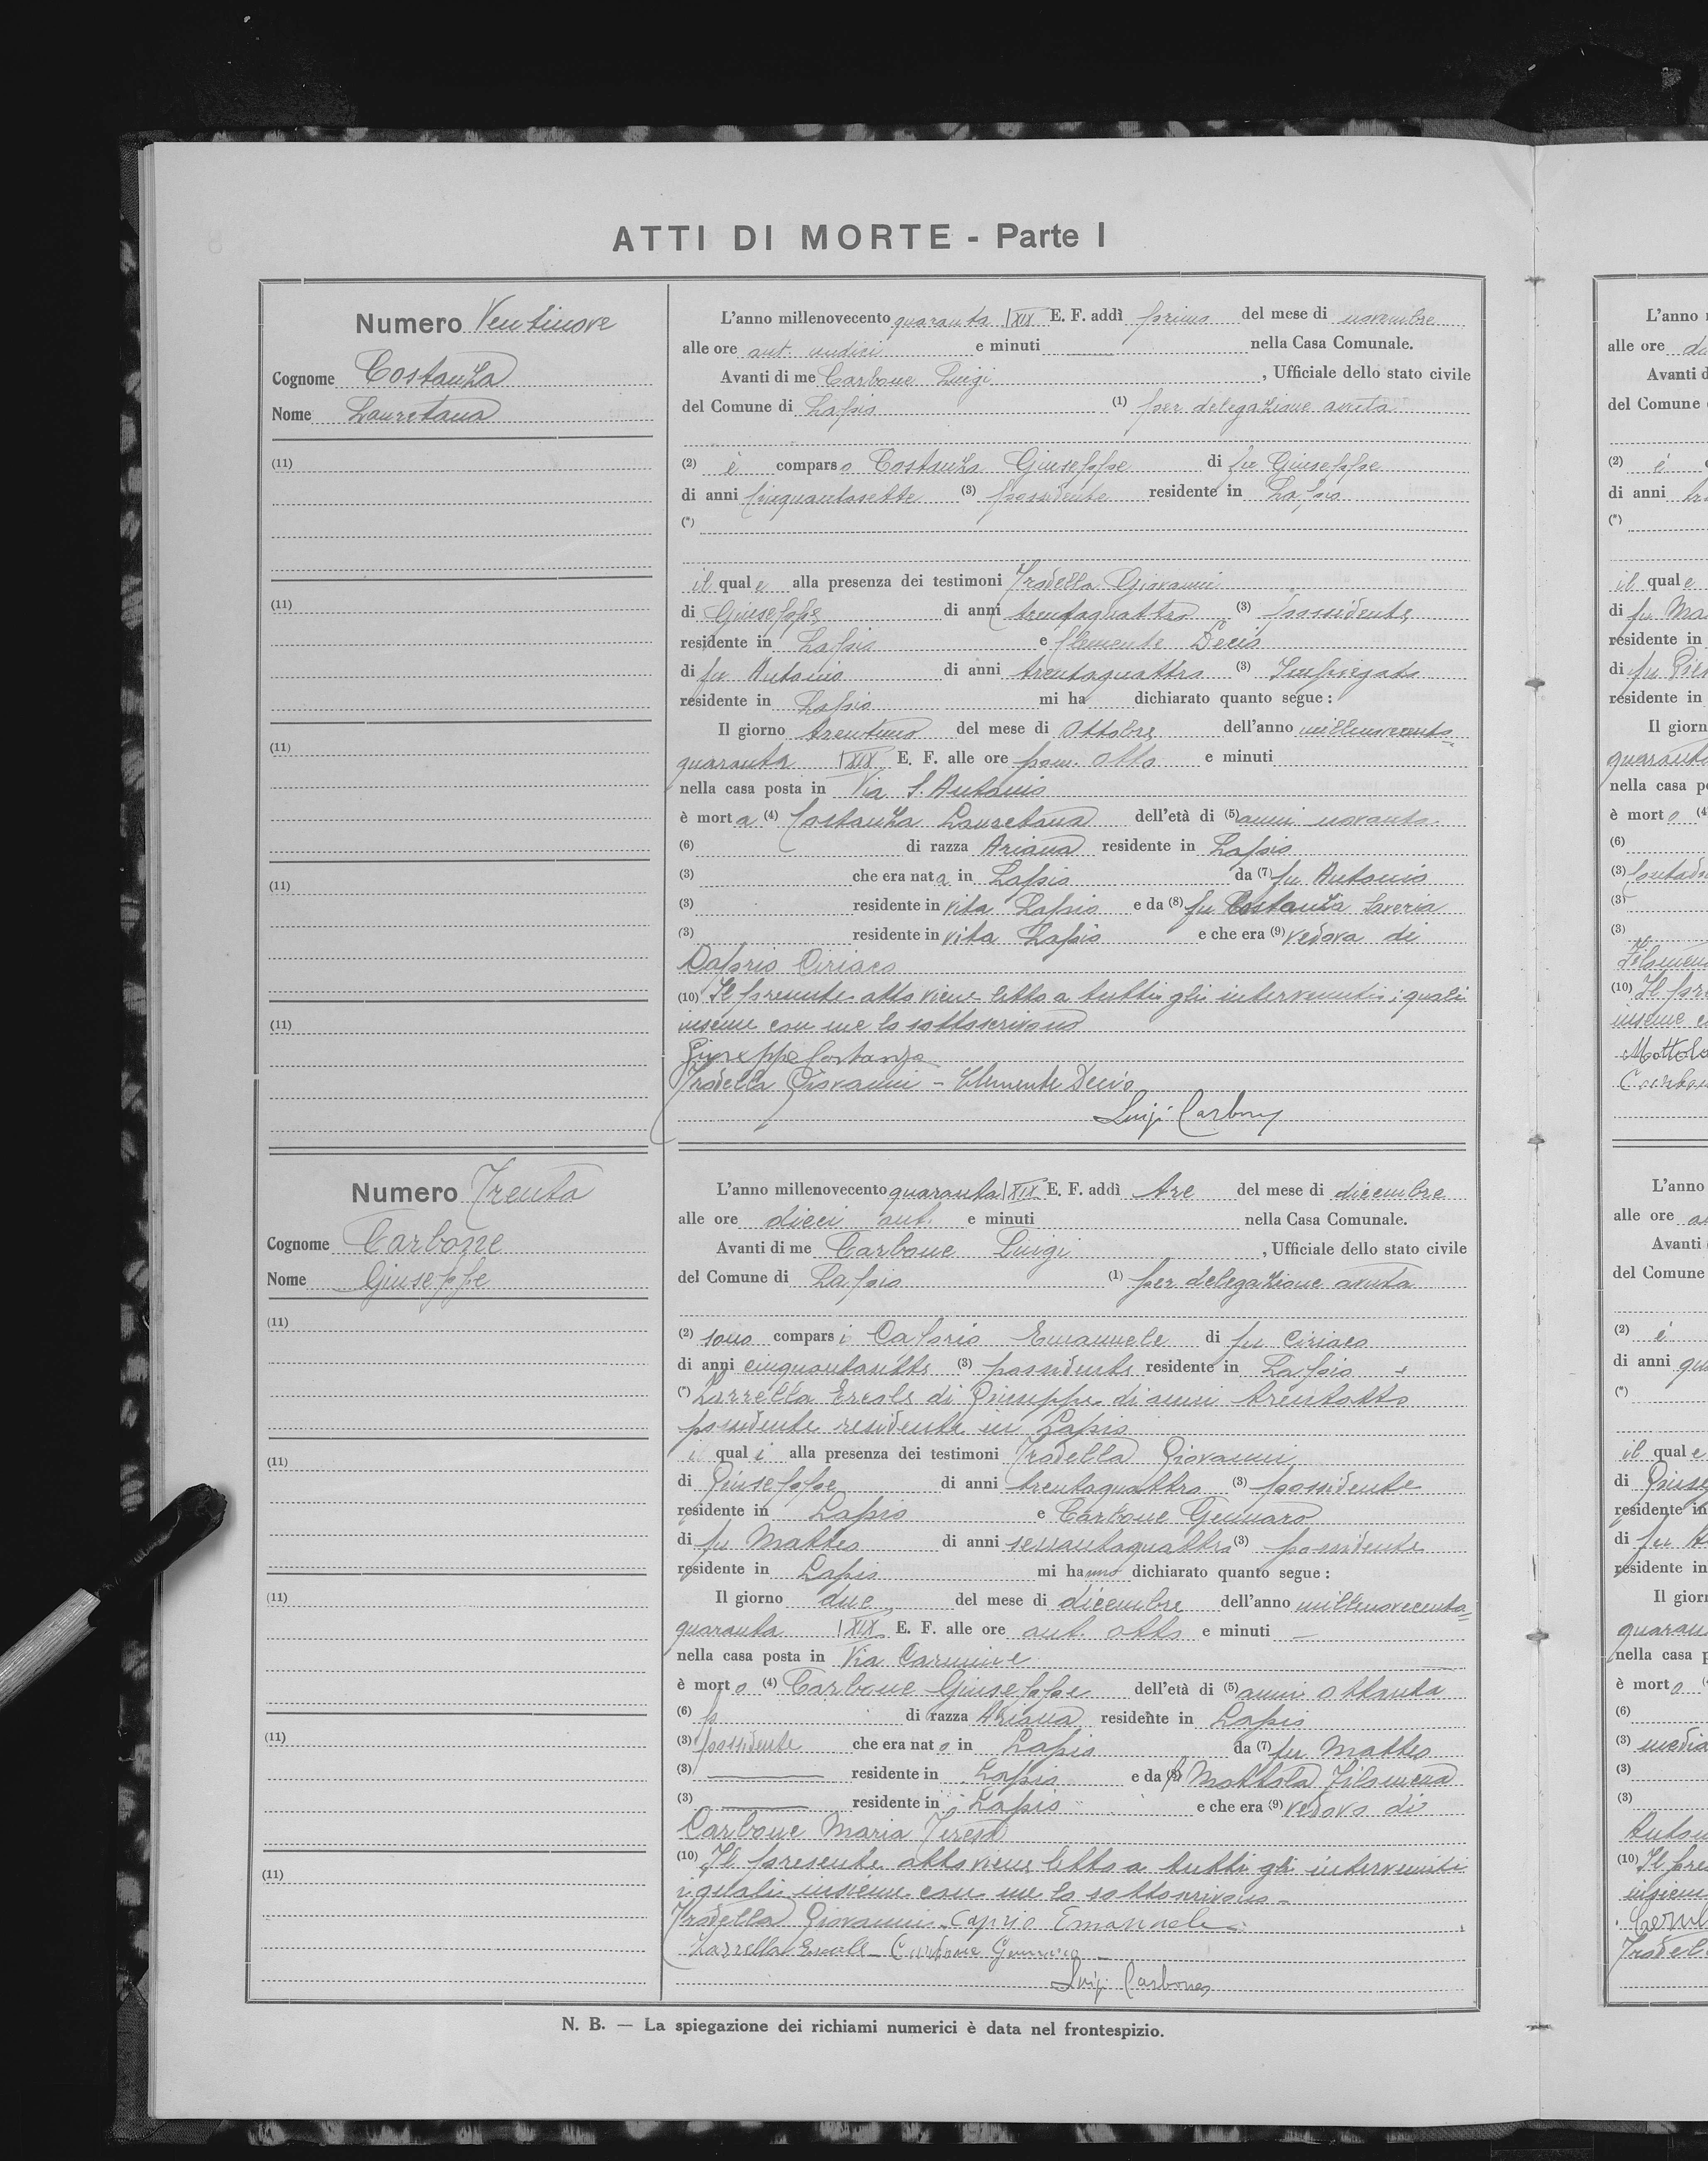 ATTI DI MORTE - Parte I
Numero Ventinove
Cognome Costanza
Nome Lauretana
(11)
(11)
(11)
(11)
(11)
L'anno millenovecento quaranta XIX E. F. addì primo del mese di novembre
alle ore ant. undici e minuti nella Casa Comunale.
Avanti di me Carbone Luigi, Ufficiale dello stato civile
del Comune di Lapio (1) per delegazione avuta
(2) è comparso Costanza Giuseppe di fu Giuseppe
di anni cinquantasette (3) possidente residente in Lapio
(*)
il quale alla presenza dei testimoni Trodella Giovanni
di Giuseppe di anni trentaquattro (3) possidente
residente in Lapio e Clemente Decio
di fu Antonio di anni trentaquattro (3) Impiegato
residente in Lapio mi ha dichiarato quanto segue:
Il giorno trentuno del mese di Ottobre dell'anno millenovecento
quaranta XIX E. F. alle ore pom. Otto e minuti
nella casa posta in Via S. Antonio
è morta (4) Costanza Lauretana dell'età di (5) anni novanta
(6) di razza Ariana residente in Lapio
(3) che era nata in Lapio da (7) fu Antonio
(3) residente in vita Lapio e da (8) fu Costanza Saveria
(3) residente in vita Lapio e che era (9) vedova di
Caprio Ciriaco
(10) Il presente atto viene letto a tutti gli intervenuti i quali
insieme con me lo sottoscrivono
Giuseppe Costanza
Trodella Giovanni - Clemente Decio
Luigi Carbone
Numero Trenta
Cognome Carbone
Nome Giuseppe
(11)
(11)
(11)
(11)
(11)
L'anno millenovecento quaranta XIX E. F. addì tre del mese di dicembre
alle ore dieci ant. e minuti nella Casa Comunale.
Avanti di me Carbone Luigi, Ufficiale dello stato civile
del Comune di Lapio (1) per delegazione avuta
(2) sono comparsi Caprio Emanuele di fu Ciriaco
di anni cinquantasette (3) possidente residente in Lapio e
(*) Zarrella Ercole di Giuseppe di anni trentotto
possidente residente in Lapio
i quali alla presenza dei testimoni Trodella Giovanni
di Giuseppe di anni trentaquattro (3) possidente
residente in Lapio e Carbone Gennaro
di fu Matteo di anni sessantaquattro (3) possidente
residente in Lapio mi hanno dichiarato quanto segue:
Il giorno due del mese di dicembre dell'anno millenovecento=
quaranta XIX E. F. alle ore ant. otto e minuti —
nella casa posta in Via Carmine
è morto (4) Carbone Giuseppe dell'età di (5) anni ottanta
(6) di razza Ariana residente in Lapio
(3) possidente che era nato in Lapio da (7) fu Matteo
(3) — residente in Lapio e da (8) Mottola Filomena
(3) — residente in Lapio e che era (9) vedovo di
Carbone Maria Teresa
(10) Il presente atto viene letto a tutti gli intervenuti
i quali insieme con me lo sottoscrivono -
Trodella Giovanni - Caprio Emanuele
Zarrella Ercole - Carbone Gennaro -
Luigi Carbone
N. B. — La spiegazione dei richiami numerici è data nel frontespizio.
L'anno
alle ore
Avanti d
del Comune
(2) è
di anni
(*)
il quale
di fu
residente in
di fu
residente in
Il giorn
quaranta
nella casa p
è morto (4
(6)
(3)
(3)
(3)
(10) Il pre
insieme
L'anno
alle ore
Avanti
del Comune
(2) è
di anni
(*)
il quale
di
residente in
di fu
residente in
Il gior
nella casa p
è morto
(6)
(3)
(3)
(3)
(10) Il pre